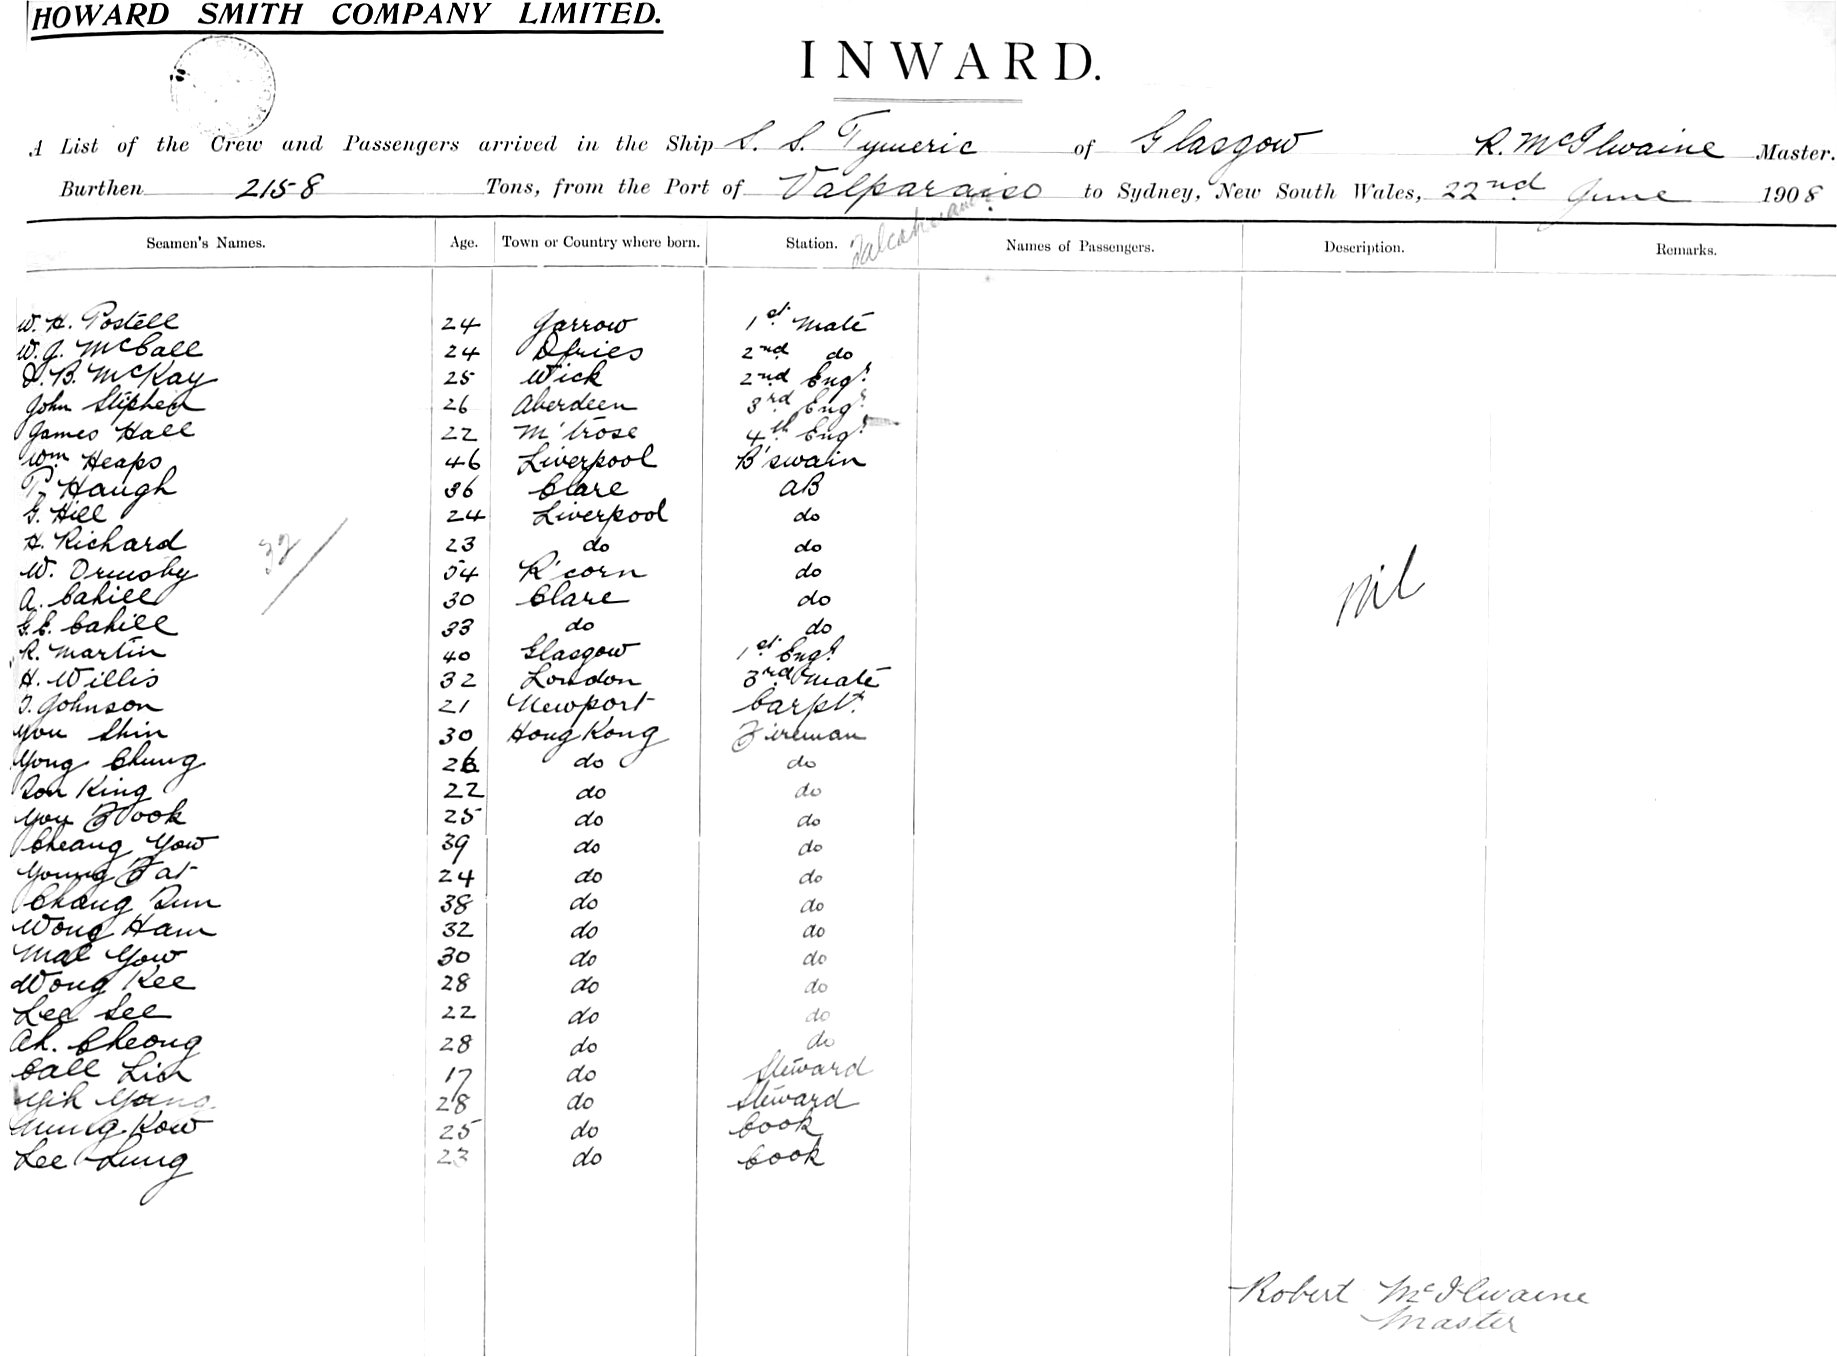 HOWARD SMITH COMPANY LIMITED.
INWARD.
A List of the Crew and Passengers arrived in the Ship S. S. Tymeric of Glasgow R. McIlwaine Master.
Burthen 2158 Tons, from the Port of Valparaiso to Sydney, New South Wales, 22nd June 1908
Talcahuano
Seamen's Names. Age. Town or Country where born. Station. Names of Passengers. Description. Remarks.
W. H. Postell 24 Jarrow 1st Mate
W. J. McCall 24 2nd do
B. McKay 25 Wick 2nd Engr
John Stephen 26 Aberdeen 3rd Engr
James Hall 22 M'trose 4th Engr
Wm Heaps 46 Liverpool B'swain
P. Haugh 36 Clare AB
G. Hill 24 Liverpool do
H. Richard 23 do do
32
W. Ormsby 54 R'corn do
A. Cahill 30 Clare do
Nil
G. E. Cahill 33 do do
R. Martin 40 Glasgow 1st Engr
H. Willis 32 London 3rd Mate
Johnson 21 Newport Carptr
You Shin 30 Hong Kong Fireman
Yong Chung 26 do do
King 22 do do
You Fook 25 do do
Cheang Yow 39 do do
Young Fat 24 do do
Chang Sun 38 do do
Wong Ham 32 do do
Mal Yow 30 do do
Wong Kee 28 do do
Lee See 22 do do
Ah. Cheong 28 do do
Call Lin 17 do Steward
Yik Yong 28 do Steward
Kow 25 do Cook
Lee Lung 23 do Cook
Robert McIlwaine
Master